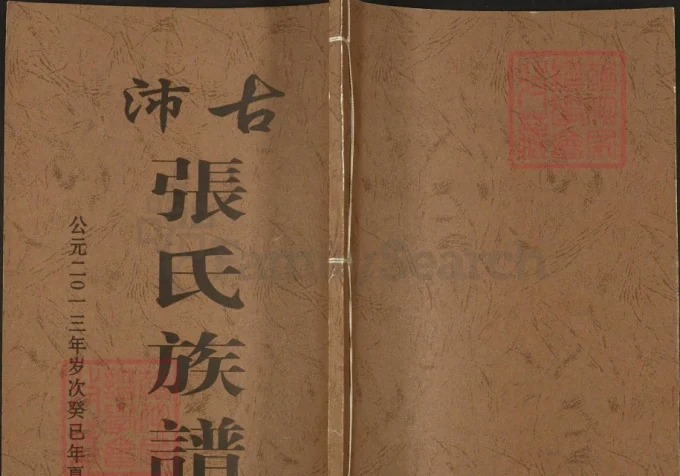 古沛
張氏族譜
公元二0一三年岁次癸巳年夏
FamilySearch